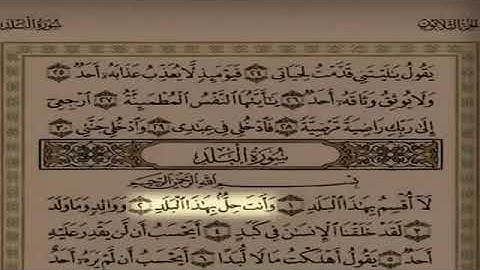 سُورَةُ الْبَلَدِ
الجزء الثلاثون
يَقُولُ يَٰلَيْتَنِي قَدَّمْتُ لِحَيَاتِي ٢٤ فَيَوْمَئِذٍ لَّا يُعَذِّبُ عَذَابَهُۥٓ أَحَدٌ ٢٥
وَلَا يُوثِقُ وَثَاقَهُۥٓ أَحَدٌ ٢٦ يَٰٓأَيَّتُهَا ٱلنَّفْسُ ٱلْمُطْمَئِنَّةُ ٢٧ ٱرْجِعِيٓ
إِلَىٰ رَبِّكِ رَاضِيَةً مَّرْضِيَّةً ٢٨ فَٱدْخُلِي فِي عِبَٰدِي ٢٩ وَٱدْخُلِي جَنَّتِي ٣٠
سُورَةُ الْبَلَدِ
بِسْمِ ٱللَّهِ ٱلرَّحْمَٰنِ ٱلرَّحِيمِ
لَآ أُقْسِمُ بِهَٰذَا ٱلْبَلَدِ ١ وَأَنتَ حِلٌّۢ بِهَٰذَا ٱلْبَلَدِ ٢ وَوَالِدٍ وَمَا وَلَدَ
٣ لَقَدْ خَلَقْنَا ٱلْإِنسَٰنَ فِي كَبَدٍ ٤ أَيَحْسَبُ أَن لَّن يَقْدِرَ عَلَيْهِ
أَحَدٌ ٥ يَقُولُ أَهْلَكْتُ مَالًا لُّبَدًا ٦ أَيَحْسَبُ أَن لَّمْ يَرَهُۥٓ أَحَدٌ